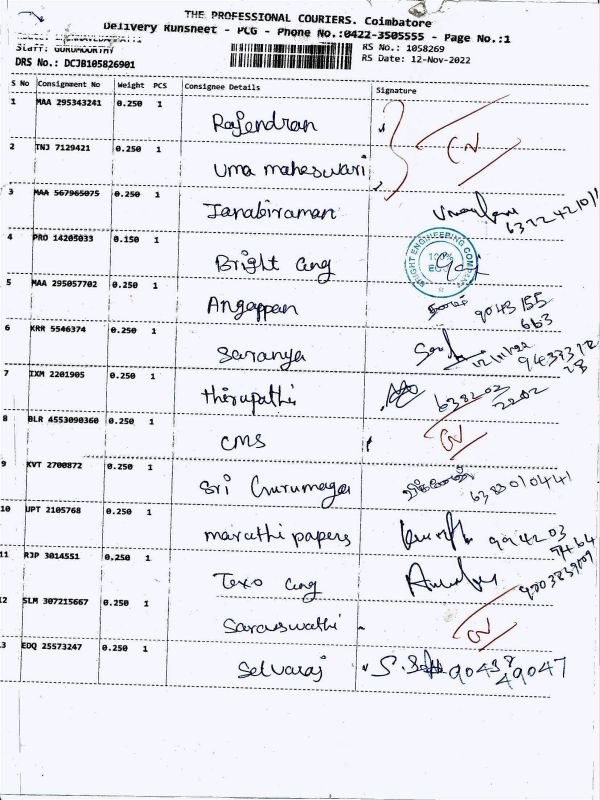 THE PROFESSIONAL COURIERS. Coimbatore
Delivery Runsheet - PCG - Phone No.:0422-3505555 - Page No.:1
Staff: GURUMOORTHY
RS No.: 1058269
DRS No.: DCJB105826901
RS Date: 12-Nov-2022
S No Consignment No Weight PCS Consignee Details Signature
1 MAA 295343241 0.250 1 Rajendran
2 TNJ 7129421 0.250 1 Uma maheswari
3 MAA 567965075 0.250 1 Janabiraman
4 PRO 14205033 0.150 1 Bright eng
BRIGHT ENGINEERING COMPANY
5 MAA 295057702 0.250 1 Angappan 9043 155
663
6 KRR 5546374 0.250 1 Saranya 12/11/22
7 IXM 2201905 0.250 1 thirupathi 638202
2202
8 BLR 4553090360 0.250 1 CMS
9 KVT 2700872 0.250 1 Sri Gurumaga 6383010441
10 UPT 2105768 0.250 1 maruthi papers 994203
7464
11 RJP 3014551 0.250 1 Texo eng
2 SLM 307215667 0.250 1 Saraswathi
3 EDQ 25573247 0.250 1 Selvaraj 90438
49047